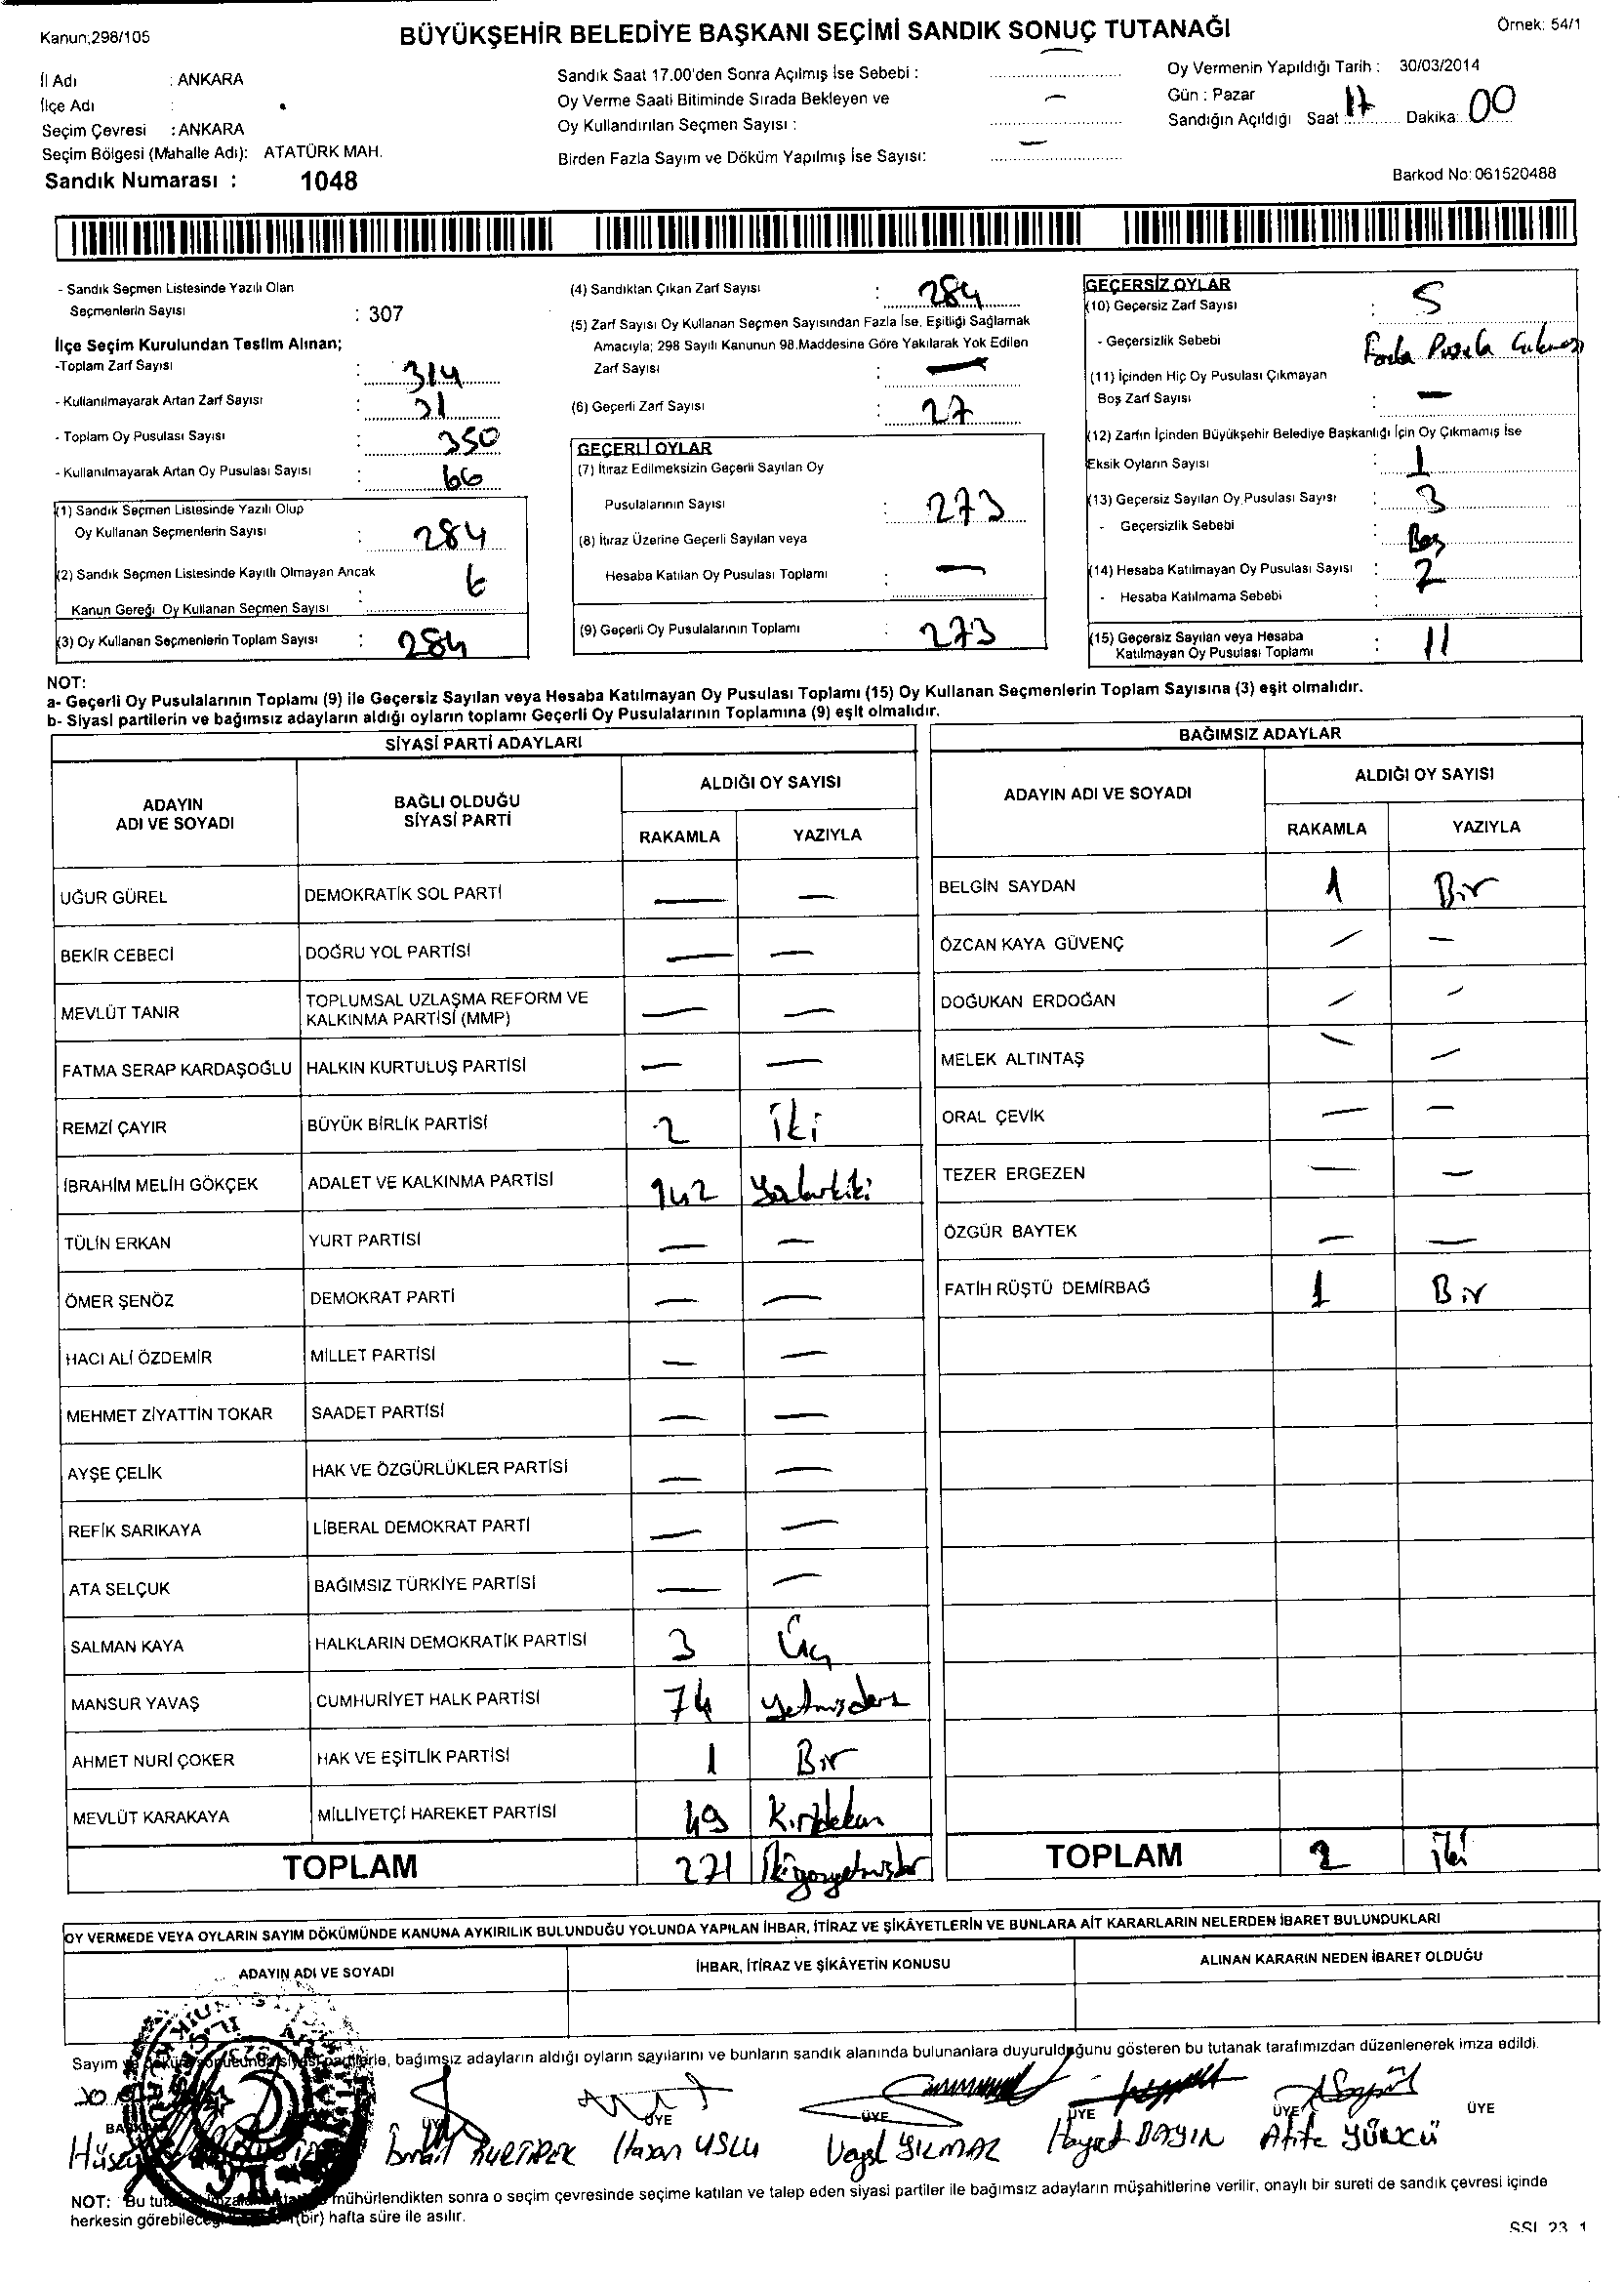 Kanun;298/105
BÜYÜKŞEHİR BELEDİYE BAŞKANI SEÇİMİ SANDIK SONUÇ TUTANAĞI
Örnek: 54/1
İl Adı : ANKARA
İlçe Adı :
Seçim Çevresi : ANKARA
Seçim Bölgesi (Mahalle Adı): ATATÜRK MAH.
Sandık Numarası : 1048
Sandık Saat 17.00'den Sonra Açılmış İse Sebebi : —
Oy Verme Saati Bitiminde Sırada Bekleyen ve
Oy Kullandırılan Seçmen Sayısı : —
Birden Fazla Sayım ve Döküm Yapılmış İse Sayısı: —
Oy Vermenin Yapıldığı Tarih : 30/03/2014
Gün : Pazar
Sandığın Açıldığı Saat 17 Dakika: 00
Barkod No: 061520488
- Sandık Seçmen Listesinde Yazılı Olan
Seçmenlerin Sayısı : 307
İlçe Seçim Kurulundan Teslim Alınan;
-Toplam Zarf Sayısı : 314
- Kullanılmayarak Artan Zarf Sayısı : 31
- Toplam Oy Pusulası Sayısı : 350
- Kullanılmayarak Artan Oy Pusulası Sayısı : 66
(1) Sandık Seçmen Listesinde Yazılı Olup
Oy Kullanan Seçmenlerin Sayısı : 284
(2) Sandık Seçmen Listesinde Kayıtlı Olmayan Ancak
Kanun Gereği Oy Kullanan Seçmen Sayısı : 6
(3) Oy Kullanan Seçmenlerin Toplam Sayısı : 284
(4) Sandıktan Çıkan Zarf Sayısı : 284
(5) Zarf Sayısı Oy Kullanan Seçmen Sayısından Fazla İse, Eşitliği Sağlamak
Amacıyla; 298 Sayılı Kanunun 98.Maddesine Göre Yakılarak Yok Edilen
Zarf Sayısı : —
(6) Geçerli Zarf Sayısı : 27
GEÇERLİ OYLAR
(7) İtiraz Edilmeksizin Geçerli Sayılan Oy
Pusulalarının Sayısı : 273
(8) İtiraz Üzerine Geçerli Sayılan veya
Hesaba Katılan Oy Pusulası Toplamı : —
(9) Geçerli Oy Pusulalarının Toplamı : 273
GEÇERSİZ OYLAR
(10) Geçersiz Zarf Sayısı : 5
- Geçersizlik Sebebi Fazla Pusula Çıkması
(11) İçinden Hiç Oy Pusulası Çıkmayan
Boş Zarf Sayısı : —
(12) Zarfın İçinden Büyükşehir Belediye Başkanlığı İçin Oy Çıkmamış İse
Eksik Oyların Sayısı : 1
(13) Geçersiz Sayılan Oy Pusulası Sayısı : 3
- Geçersizlik Sebebi : Boş
(14) Hesaba Katılmayan Oy Pusulası Sayısı : 2
- Hesaba Katılmama Sebebi :
(15) Geçersiz Sayılan veya Hesaba
Katılmayan Oy Pusulası Toplamı : 11
NOT:
a- Geçerli Oy Pusulalarının Toplamı (9) ile Geçersiz Sayılan veya Hesaba Katılmayan Oy Pusulası Toplamı (15) Oy Kullanan Seçmenlerin Toplam Sayısına (3) eşit olmalıdır.
b- Siyasi partilerin ve bağımsız adayların aldığı oyların toplamı Geçerli Oy Pusulalarının Toplamına (9) eşit olmalıdır.
SİYASİ PARTİ ADAYLARI
ADAYIN
ADI VE SOYADI
BAĞLI OLDUĞU
SİYASİ PARTİ
ALDIĞI OY SAYISI
RAKAMLA YAZIYLA
UĞUR GÜREL DEMOKRATİK SOL PARTİ — —
BEKİR CEBECİ DOĞRU YOL PARTİSİ — —
MEVLÜT TANIR TOPLUMSAL UZLAŞMA REFORM VE
KALKINMA PARTİSİ (MMP) — —
FATMA SERAP KARDAŞOĞLU HALKIN KURTULUŞ PARTİSİ — —
REMZİ ÇAYIR BÜYÜK BİRLİK PARTİSİ 2 iki
İBRAHİM MELİH GÖKÇEK ADALET VE KALKINMA PARTİSİ 142 Yüzkırkiki
TÜLİN ERKAN YURT PARTİSİ — —
ÖMER ŞENÖZ DEMOKRAT PARTİ — —
HACI ALİ ÖZDEMİR MİLLET PARTİSİ — —
MEHMET ZİYATTİN TOKAR SAADET PARTİSİ — —
AYŞE ÇELİK HAK VE ÖZGÜRLÜKLER PARTİSİ — —
REFİK SARIKAYA LİBERAL DEMOKRAT PARTİ — —
ATA SELÇUK BAĞIMSIZ TÜRKİYE PARTİSİ — —
SALMAN KAYA HALKLARIN DEMOKRATİK PARTİSİ 3 Üç
MANSUR YAVAŞ CUMHURİYET HALK PARTİSİ 74 Yetmişdört
AHMET NURİ ÇOKER HAK VE EŞİTLİK PARTİSİ 1 Bir
MEVLÜT KARAKAYA MİLLİYETÇİ HAREKET PARTİSİ 49 Kırkdokuz
TOPLAM 271 İkiyüzyetmişbir
BAĞIMSIZ ADAYLAR
ADAYIN ADI VE SOYADI
ALDIĞI OY SAYISI
RAKAMLA YAZIYLA
BELGİN SAYDAN 1 Bir
ÖZCAN KAYA GÜVENÇ — —
DOĞUKAN ERDOĞAN — —
MELEK ALTINTAŞ — —
ORAL ÇEVİK — —
TEZER ERGEZEN — —
ÖZGÜR BAYTEK — —
FATİH RÜŞTÜ DEMİRBAĞ 1 Bir
TOPLAM 2 iki
OY VERMEDE VEYA OYLARIN SAYIM DÖKÜMÜNDE KANUNA AYKIRILIK BULUNDUĞU YOLUNDA YAPILAN İHBAR, İTİRAZ VE ŞİKÂYETLERİN VE BUNLARA AİT KARARLARIN NELERDEN İBARET BULUNDUKLARI
ADAYIN ADI VE SOYADI İHBAR, İTİRAZ VE ŞİKÂYETİN KONUSU ALINAN KARARIN NEDEN İBARET OLDUĞU
Sayım bağımsız adayların aldığı oyların sayılarını ve bunların sandık alanında bulunanlara duyurulduğunu gösteren bu tutanak tarafımızdan düzenlenerek imza edildi.
ÜYE ÜYE ÜYE ÜYE ÜYE ÜYE
Hasan USLU Veysel YILMAZ Hayret DAYIN Atife YÜRKCÜ
NOT: Bu mühürlendikten sonra o seçim çevresinde seçime katılan ve talep eden siyasi partiler ile bağımsız adayların müşahitlerine verilir, onaylı bir sureti de sandık çevresi içinde
herkesin (bir) hafta süre ile asılır.